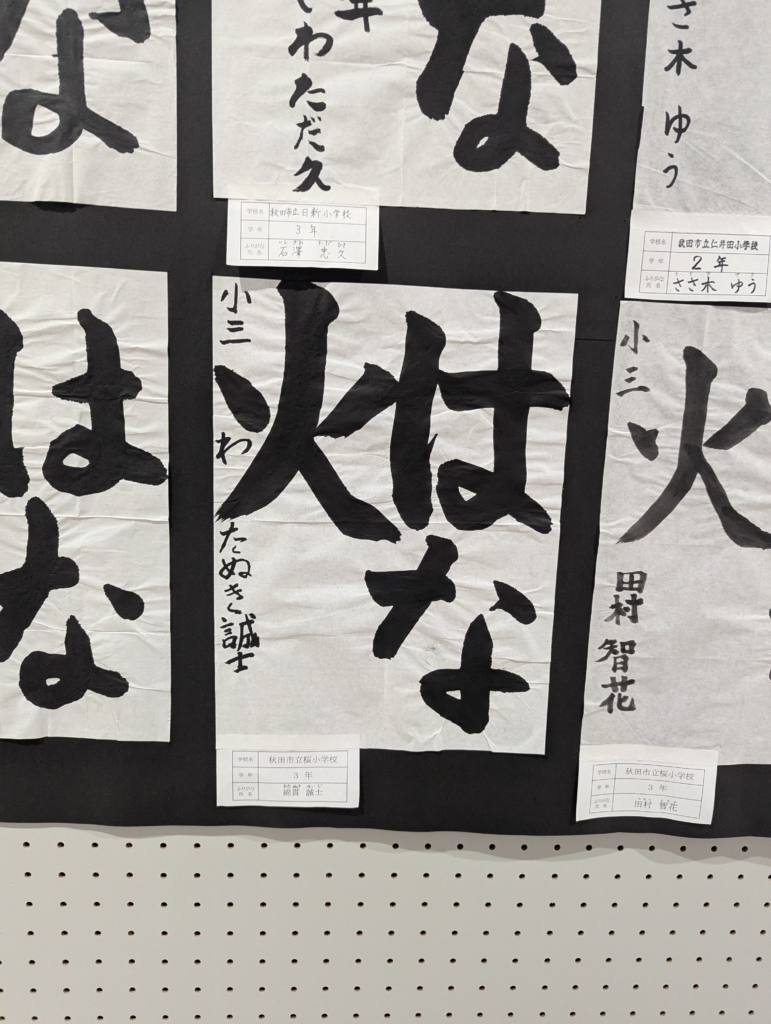 な
年
しわただ久
な
学校名 秋田市立日新小学校
学年 3年
ふりがな いしざわ ただひさ
氏名 石澤 忠久
ささ木 ゆう
学校名 秋田市立仁井田小学校
学年 2年
ふりがな
氏名 ささ木 ゆう
はな
はな
火
小三 わたぬき 誠士
学校名 秋田市立桜小学校
学年 3年
ふりがな わたぬき せいじ
氏名 綿貫 誠士
火
小三 田村 智花
学校名 秋田市立桜小学校
学年 3年
ふりがな
氏名 田村 智花